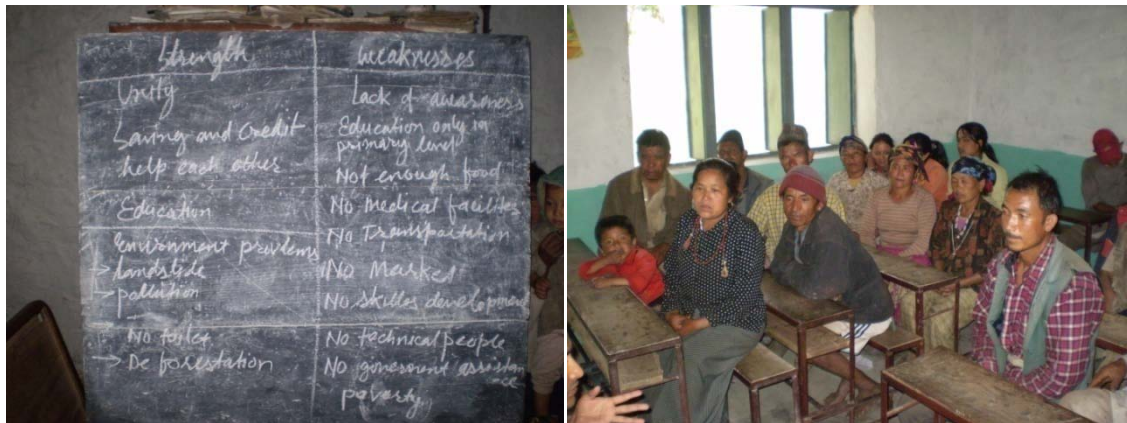 Strength
Unity
Saving and Credit
help each other
Education
Envirnment provlems
→ landslide
→ pollution
No toilet
→ De forestation
Weaknesses
Lack of awareness
Education only in
primary level
Not enough food
No medical facilites
No Transpartation
No Market
No skilles development
No technical people
No goverment assistan
ce
poverty